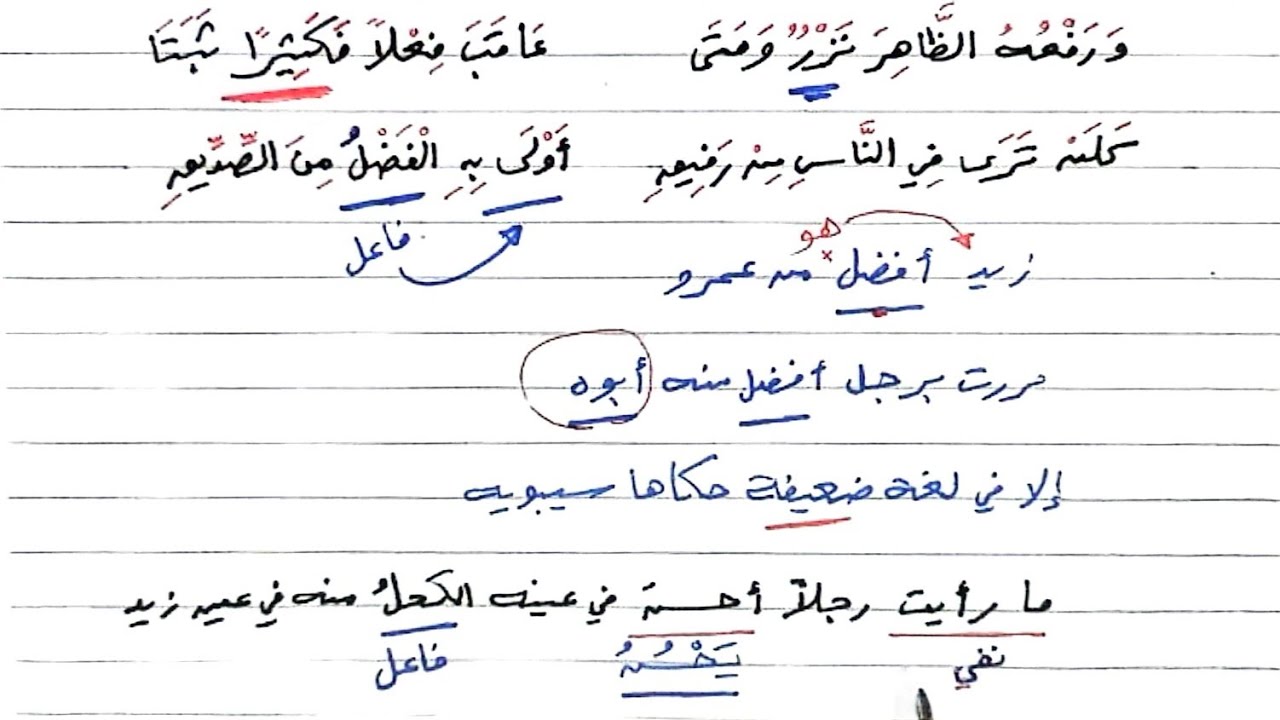 وَرَفْعُهُ الظَّاهِرَ نَزْرٌ وَمَتَى عَاقَبَ فِعْلًا فَكَثِيرًا ثَبَتَا
كَلَنْ تَرَى فِي النَّاسِ مِنْ رَفِيقِ أَوْلَى بِهِ الْفَضْلُ مِنَ الصِّدِّيقِ
فاعل
هو
زيد أفضل من عمرو
مررت برجل أفضل منه أبوه
إلا في لغة ضعيفة حكاها سيبويه
ما رأيت رجلاً أحسن في عينه الكحلُ منه في عين زيد
نفي يَحْسُنُ فاعل